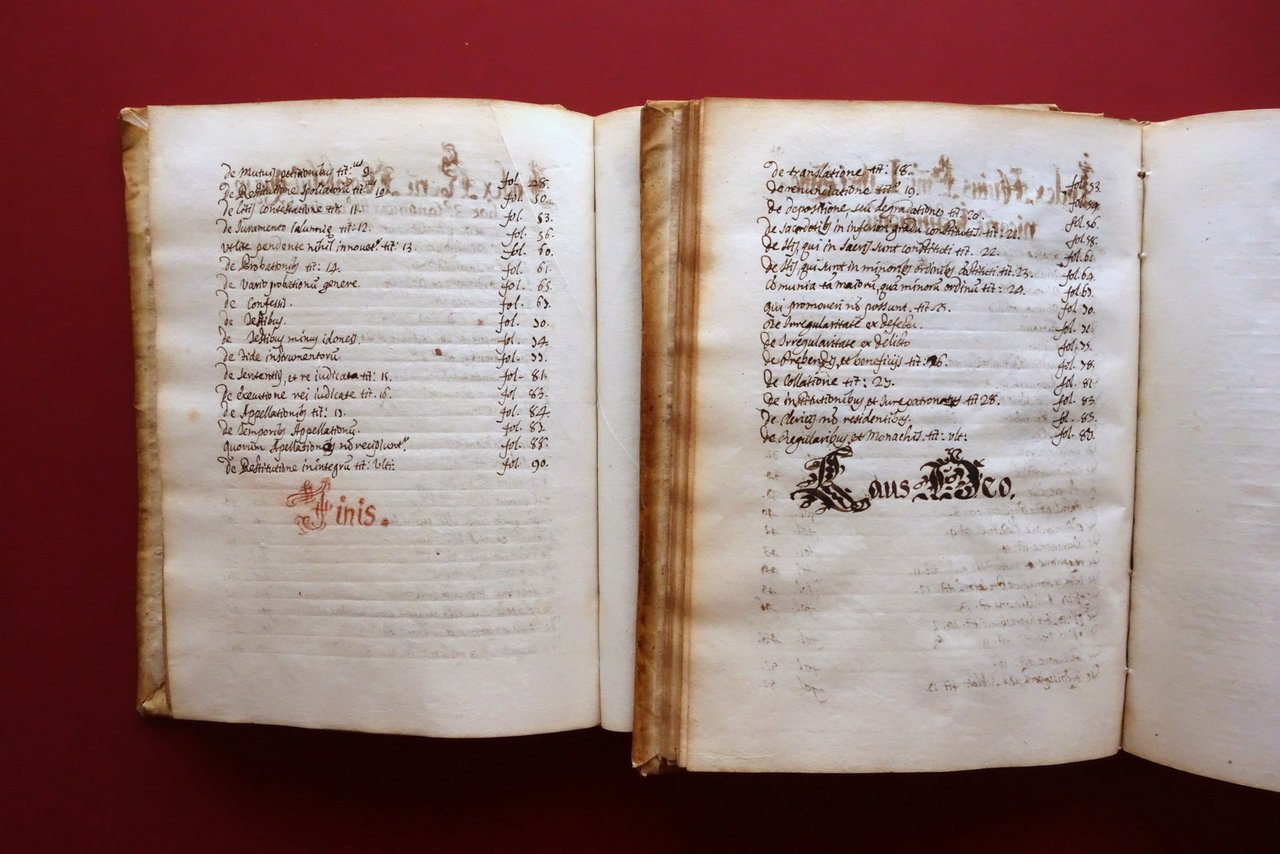 de Mutuis petitionibus tit:us 9.
de Restitutione spoliatorū titus 10. fol. 48.
de Litis contestatione tit: 11. fol. 50.
de Juramento Calumnię tit: 12. fol. 53.
Ut lite pendente nihil innovetr tit: 13. fol. 56.
de Probationibus tit: 14. fol. 60.
de vario probationū genere. fol. 61.
de Confessis. fol. 65.
de Testibus. fol.
de Testibus minus idoneis fol.
de Fide instrumentorū fol.
de Sententijs, et re iudicata tit: 15. fol. 81.
de executione rei iudicatę tit. 16. fol. 83.
de Appellationibus tit: fol. 84.
de Temporibus Appellationū. fol.
quorum Apellationes nō recipiuntr fol. 88.
de Restitutione in integrū tit: ulti: fol. 90.
Finis.
de translatione tit: 18.
de renunciatione titus 19. fol. 53.
de depositione, seu degradatione tit 20. fol.
de sacerdotibus in inferiori gradu constitutis tit: 21. fol. 56.
de His, qui in Sacris sunt constituti tit. 22. fol. 58.
de His qui sunt in minoribus ordinibus constituti tit. 23. fol. 61.
Comunia tā maiorū, quā minorū ordinū tit: 24. fol.
qui promoveri nō possunt. tit: 25. fol.
de Irregularitate ex defectu. fol.
de Irregularitate ex delicto fol.
de Prębendis, et beneficijs tit: 26. fol.
de Collatione tit: 27. fol.
de institutionibus et Jure patronatus tit 28. fol. 81.
de Clericis nō residentibus. fol. 83.
de Regularibus, et Monachis. tit: ult: fol. 85.
Laus Deo.